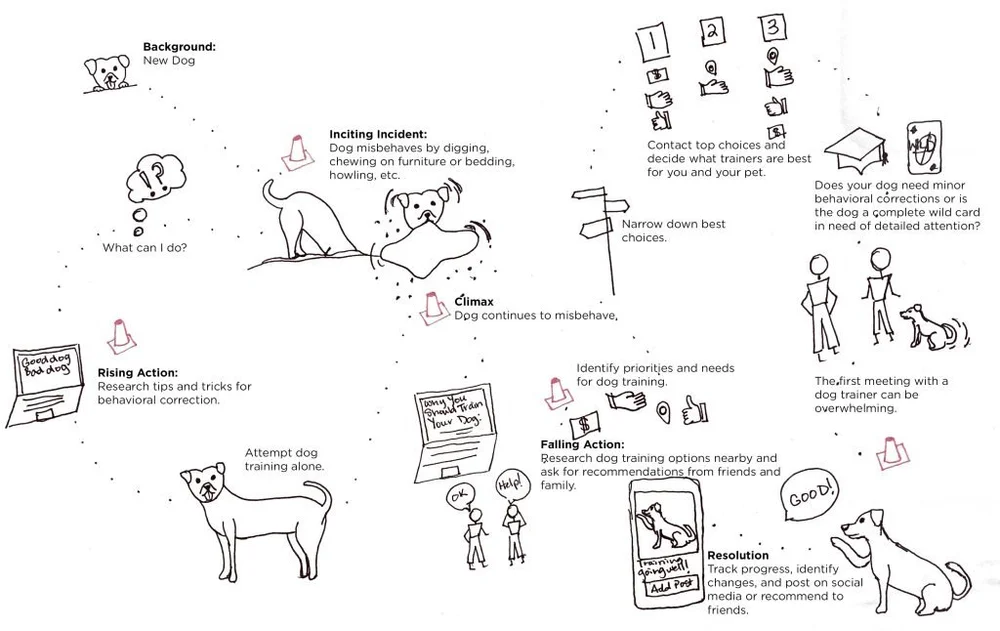 Background:
New Dog
Inciting Incident:
Dog misbehaves by digging,
chewing on furniture or bedding,
howling, etc.
What can I do?
!?
Rising Action:
Research tips and tricks for
behavioral correction.
Good dog
Bad dog
Attempt dog
training alone.
Climax
Dog continues to misbehave,
Why You
Should Train
Your Dog:
OK
Help!
Identify priorities and needs
for dog training.
$
Falling Action:
Research dog training options nearby and
ask for recommendations from friends and
family.
Narrow down best
choices.
1
2
3
$
$
Contact top choices and
decide what trainers are best
for you and your pet.
WILD
Does your dog need minor
behavioral corrections or is
the dog a complete wild card
in need of detailed attention?
The first meeting with a
dog trainer can be
overwhelming.
GOOD!
Training
going well!
Add Post
Resolution
Track progress, identify
changes, and post on social
media or recommend to
friends.